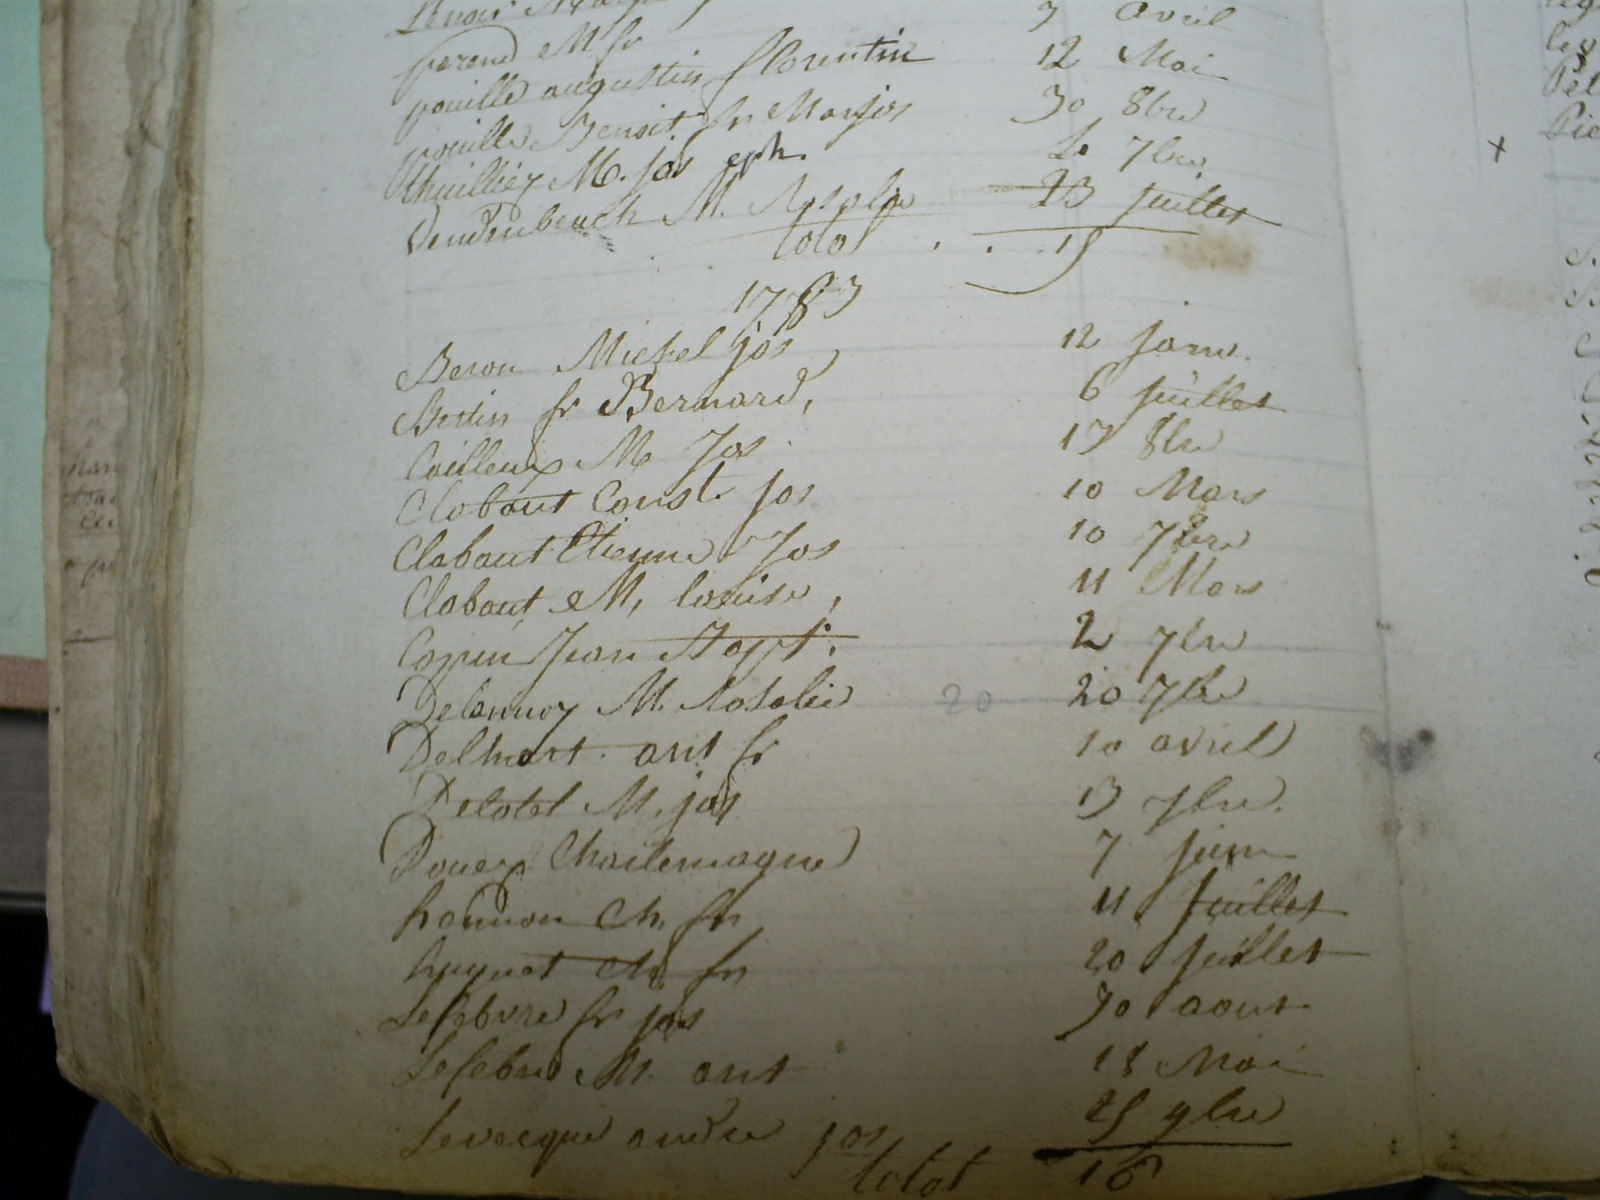 Lenoir 3 avril
perend M fr 12 Mai
pouille augustin florentin 30 8bre
pouille Benoit fr Marjos 20 7bre
thuilliez M. jos eph. 23 juillet
Vendenbeuch M. Rosalie
total . . 15
1783
Beron Michel jos 12 janv.
Bertin fr Bernard, 6 juillet
Cailleux M Jos 13 8bre
Clabaut Const. jos 10 Mars
Clabaut Etienne Jos 10 7bre
Clabaut M, louise, 11 Mars
Copin Jean Bapt. 2 7bre
Delannoy M. Rosalie 20 20 7bre
Delhort. ant fr 10 avril
Delotel M. jos 13 7bre.
Douez Charlemagne 7 juin
hannon Ch. fr 11 juillet
huguet Ch. fr 20 juillet
Lefebvre fr jos 30 aout
Lefebvre M. ant 15 Mai
Levecque andre jos 25 9bre
total 16